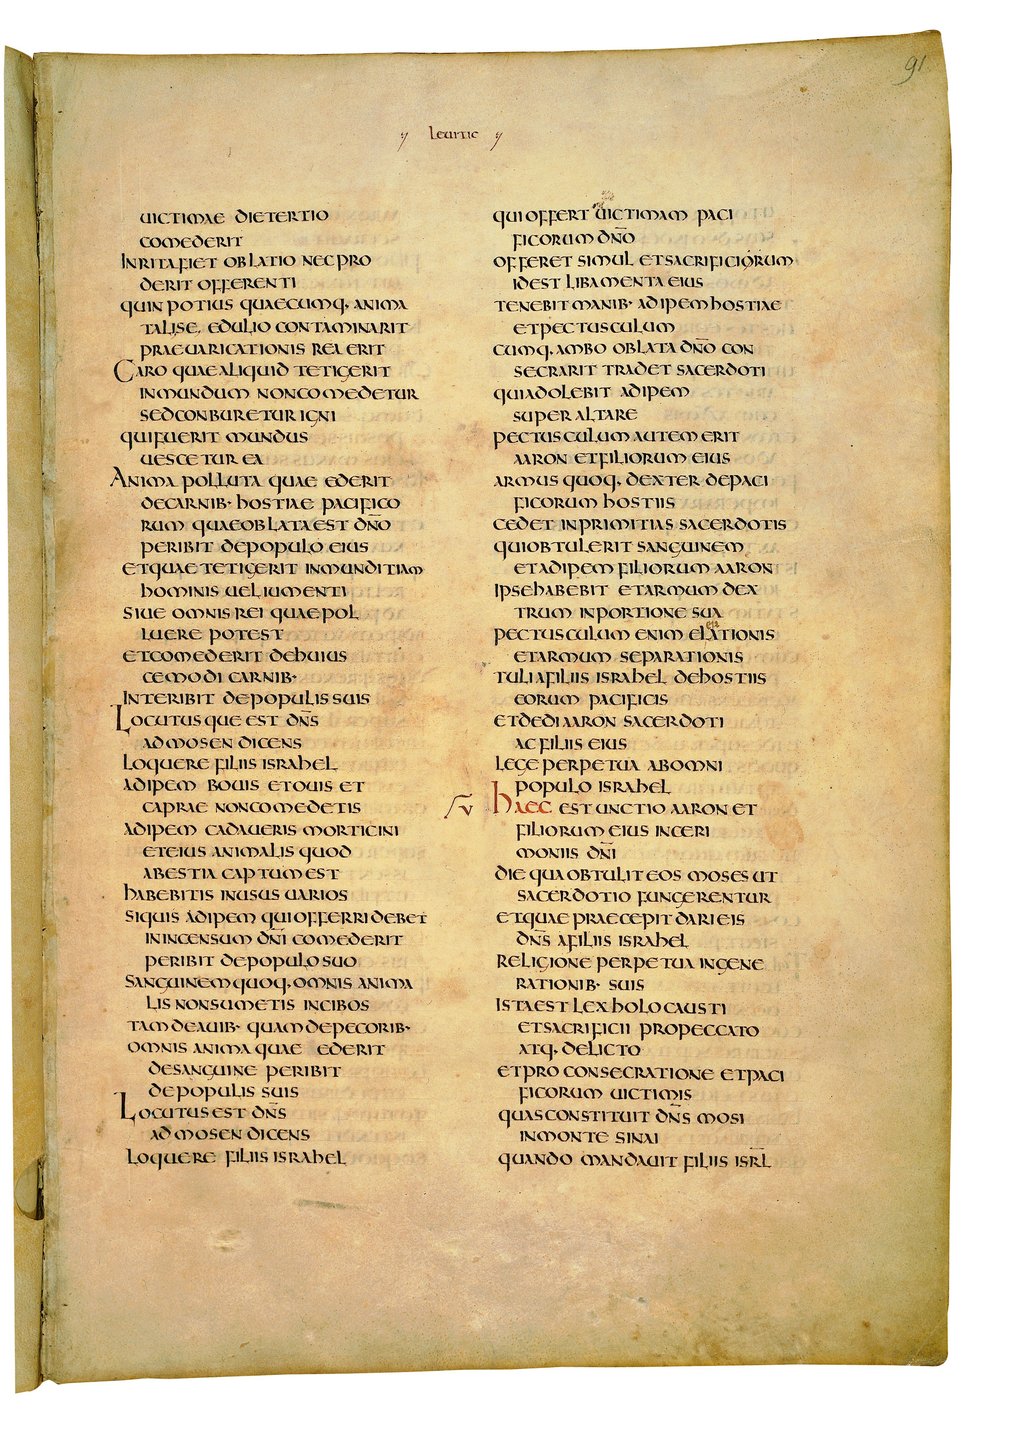 91
leuitic
uictimae die tertio
comederit
inrita fiet oblatio nec pro
derit offerenti
quin potius quaecumq· anima
tali se edulio contaminarit
praeuaricationis rea erit
Caro quae aliquid tetigerit
inmundum non comedetur
sed conburetur igni
qui fuerit mundus
uescetur ea
Anima polluta quae ederit
de carnib· hostiae pacifico
rum quae oblata est dn̄o
peribit de populo eius
et quae tetigerit inmunditiam
hominis uel iumenti
siue omnis rei quae pol
luere potest
et comederit de huius
cemodi carnib·
interibit de populis suis
Locutusque est dn̄s
ad mosen dicens
loquere filiis israhel
adipem bouis et ouis et
caprae non comedetis
adipem cadaueris morticini
et eius animalis quod
a bestia captum est
habebitis in usus uarios
si quis adipem qui offerri debet
in incensum dn̄i comederit
peribit de populo suo
sanguinem quoq· omnis anima
lis non sumetis in cibos
tam de auib· quam de pecorib·
omnis anima quae ederit
de sanguine peribit
de populis suis
Locutus est dn̄s
ad mosen dicens
loquere filiis israhel
qui offert uictimam paci
ficorum dn̄o
offeret simul et sacrificiorum
id est libamenta eius
tenebit manib· adipem hostiae
et pectusculum
cumq· ambo oblata dn̄o con
secrarit tradet sacerdoti
qui adolebit adipem
super altare
pectusculum autem erit
aaron et filiorum eius
armus quoq· dexter de paci
ficorum hostiis
cedet in primitias sacerdotis
qui obtulerit sanguinem
et adipem filiorum aaron
ipse habebit et armum dex
trum in portione sua
pectusculum enim elationis
et armum separationis
tuli a filiis israhel de hostiis
eorum pacificis
et dedi aaron sacerdoti
ac filiis eius
lege perpetua ab omni
populo israhel
haec est unctio aaron et
filiorum eius in ceri
moniis dn̄i
die qua obtulit eos moses ut
sacerdotio fungerentur
et quae praecepit dari eis
dn̄s a filiis israhel
religione perpetua in gene
rationib· suis
ista est lex holocausti
et sacrificii pro peccato
atq· delicto
et pro consecratione et paci
ficorum uictimis
quas constituit dn̄s mosi
in monte sinai
quando mandauit filiis isrl̄